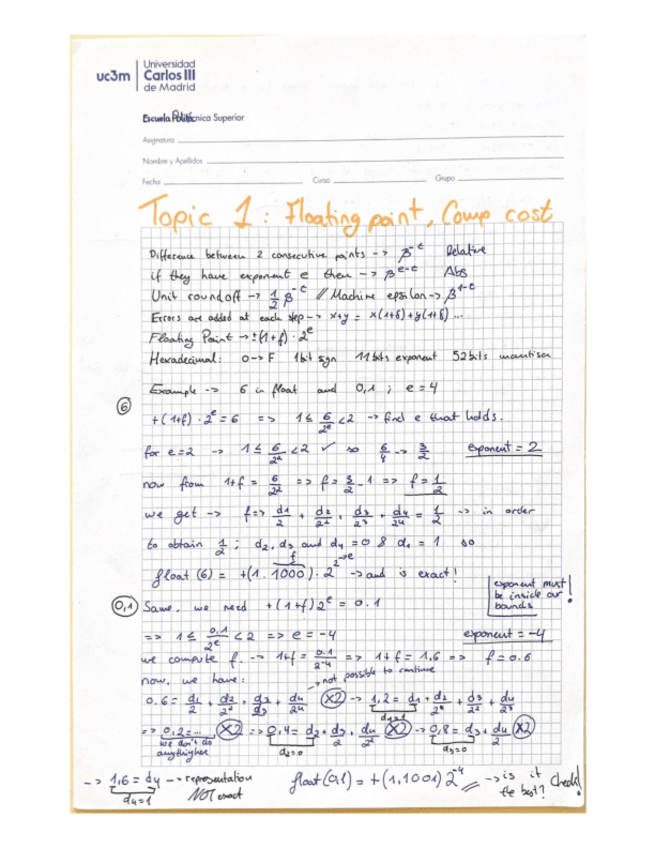 uc3m
Universidad
Carlos III
de Madrid
Escuela Politécnica Superior
Asignatura
Nombre y Apellidos
Fecha Curso Grupo
Topic 1: Floating point, Comp cost
Difference between 2 consecutive points -> β^-t Relative
if they have exponent e then -> β^e-t Abs
Unit roundoff -> 1/2 β^-t // Machine epsilon -> β^1-t
Errors are added at each step -> x+y = x(1+δ)+y(1+δ) ...
Floating Point -> ±(1+f)·2^e
Hexadecimal: 0->F 1bit sign 11 bits exponent 52 bits mantissa
Example -> 6 in float and 0,1 ; e=4
6
+(1+f)·2^e = 6 => 1 ≤ 6/2^e < 2 -> find e that holds.
for e=2 -> 1 ≤ 6/2^2 < 2 ✓ so 6/4 -> 3/2 exponent = 2
now from 1+f = 6/2^2 => f = 3/2 - 1 => f = 1/2
we get -> f => d1/2 + d2/2^2 + d3/2^3 + d4/2^4 = 1/2 -> in order
to obtain 1/2 ; d2, d3 and d4 = 0 & d1 = 1 so
f
float (6) = +(1.1000)·2^2 ->e -> and is exact!
exponent must
be inside our
bounds !
0,1
Same, we need +(1+f)2^e = 0.1
=> 1 ≤ 0.1/2^e < 2 => e = -4 exponent = -4
we compute f. -> 1+f = 0.1/2^-4 => 1+f = 1,6 => f = 0.6
now, we have: not possible to continue
0.6 = d1/2 + d2/2^2 + d3/2^3 + d4/2^4 (X2) -> 1,2 = d1 + d2/2 + d3/2^2 + d4/2^3
d1=1
=> 0,2=... (X2) => 0,4 = d2 + d3/2 + d4/2^2 (X2) -> 0,8 = d3 + d4/2 (X2)
we don't do
anything here
d2=0 d3=0
-> 1,6 = d4 -> representation
d4=1 NOT exact
float (0,1) = +(1,1001)2^-4 -> is it
the best? Check!